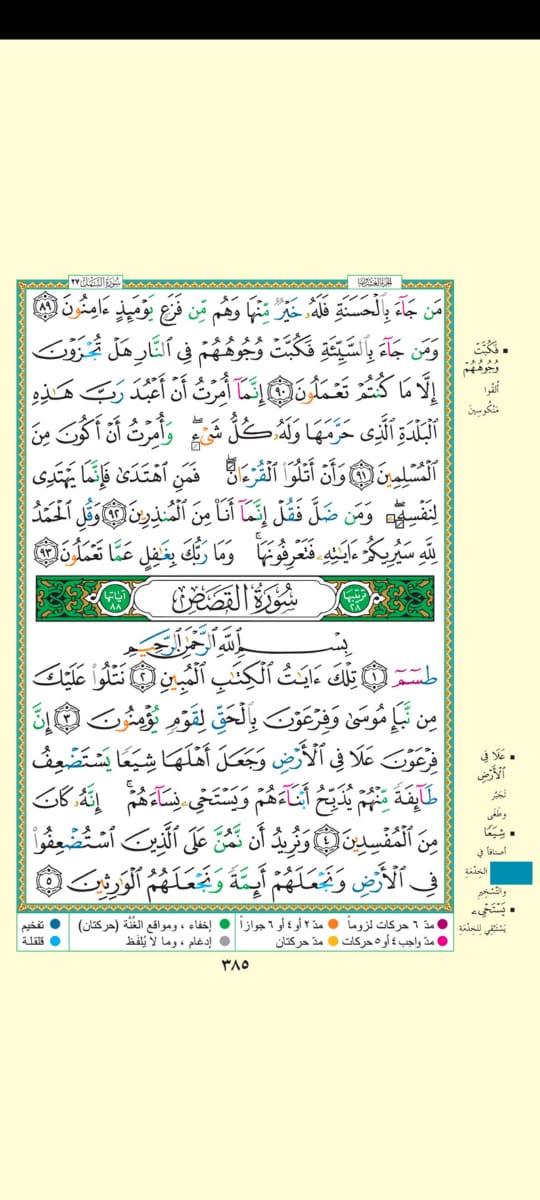 سُورَةُ النَّمْلِ ٢٧
الجزء العشرون
مَن جَآءَ بِٱلْحَسَنَةِ فَلَهُۥ خَيْرٌ مِّنْهَا وَهُم مِّن فَزَعٍ يَوْمَئِذٍ ءَامِنُونَ ٨٩
وَمَن جَآءَ بِٱلسَّيِّئَةِ فَكُبَّتْ وُجُوهُهُمْ فِى ٱلنَّارِ هَلْ تُجْزَوْنَ
إِلَّا مَا كُنتُمْ تَعْمَلُونَ ٩٠ إِنَّمَآ أُمِرْتُ أَنْ أَعْبُدَ رَبَّ هَـٰذِهِ
ٱلْبَلْدَةِ ٱلَّذِى حَرَّمَهَا وَلَهُۥ كُلُّ شَىْءٍ ۖ وَأُمِرْتُ أَنْ أَكُونَ مِنَ
ٱلْمُسْلِمِينَ ٩١ وَأَنْ أَتْلُوَا۟ ٱلْقُرْءَانَ ۖ فَمَنِ ٱهْتَدَىٰ فَإِنَّمَا يَهْتَدِى
لِنَفْسِهِۦ ۖ وَمَن ضَلَّ فَقُلْ إِنَّمَآ أَنَا۠ مِنَ ٱلْمُنذِرِينَ ٩٢ وَقُلِ ٱلْحَمْدُ
لِلَّهِ سَيُرِيكُمْ ءَايَـٰتِهِۦ فَتَعْرِفُونَهَا ۚ وَمَا رَبُّكَ بِغَـٰفِلٍ عَمَّا تَعْمَلُونَ ٩٣
ترتيبها ٢٨ سُورَةُ القَصَصِ آياتها ٨٨
بِسْمِ ٱللَّهِ ٱلرَّحْمَـٰنِ ٱلرَّحِيمِ
طسٓمٓ ١ تِلْكَ ءَايَـٰتُ ٱلْكِتَـٰبِ ٱلْمُبِينِ ٢ نَتْلُوا۟ عَلَيْكَ
مِن نَّبَإِ مُوسَىٰ وَفِرْعَوْنَ بِٱلْحَقِّ لِقَوْمٍ يُؤْمِنُونَ ٣ إِنَّ
فِرْعَوْنَ عَلَا فِى ٱلْأَرْضِ وَجَعَلَ أَهْلَهَا شِيَعًا يَسْتَضْعِفُ
طَآئِفَةً مِّنْهُمْ يُذَبِّحُ أَبْنَآءَهُمْ وَيَسْتَحْىِۦ نِسَآءَهُمْ ۚ إِنَّهُۥ كَانَ
مِنَ ٱلْمُفْسِدِينَ ٤ وَنُرِيدُ أَن نَّمُنَّ عَلَى ٱلَّذِينَ ٱسْتُضْعِفُوا۟
فِى ٱلْأَرْضِ وَنَجْعَلَهُمْ أَئِمَّةً وَنَجْعَلَهُمُ ٱلْوَٰرِثِينَ ٥
فَكُبَّتْ
وُجُوهُهُمْ
أُلقُوا
مَنكُوسِينَ
عَلَا فِي
ٱلْأَرْضِ
تَجَبَّر
وطَغَى
شِيَعًا
أصنافاً في
الخِدْمَةِ
والتَّسْخِيرِ
يَسْتَحْىِۦ
يَسْتَبْقِي لِلخِدْمَةِ
مدّ ٦ حركات لزوماً مدّ ٢ أو ٤ أو ٦ جوازاً إخفاء ، ومواقع الغُنَّة (حركتان) تفخيم
مدّ واجب ٤ أو ٥ حركات مدّ حركتان إدغام ، وما لا يُلفَظ قلقلة
٣٨٥